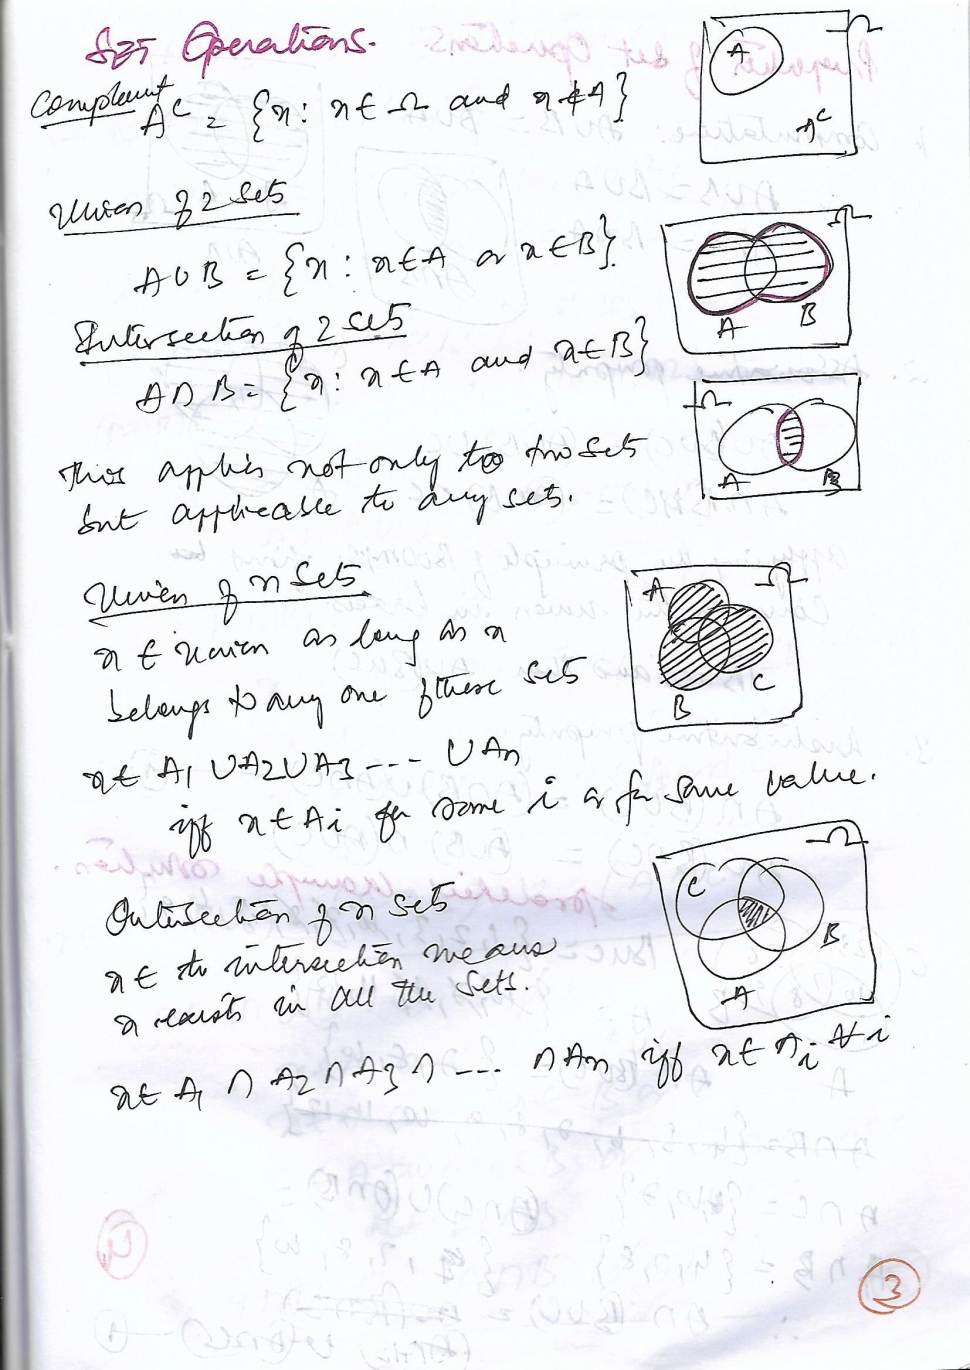 SET Operations.
A
Ω
Aᶜ
Complement
Aᶜ = {x : x ∈ Ω and x ∉ A}
Union of 2 sets
A ∪ B = {x : x ∈ A or x ∈ B}
Ω
A
B
Intersection of 2 sets
A ∩ B = {x : x ∈ A and x ∈ B}
Ω
A
B
This applies not only to two sets
but applicable to any sets.
Union of n sets
x ∈ union as long as x
belongs to any one of these sets
A
Ω
B
C
x ∈ A1 ∪ A2 ∪ A3 --- ∪ An
iff x ∈ Ai for some i or for some value.
Intersection of n sets
x ∈ to intersection means
x exists in all the sets.
Ω
C
B
A
x ∈ A1 ∩ A2 ∩ A3 ∩ --- ∩ An iff x ∈ Ai ∀ i
3